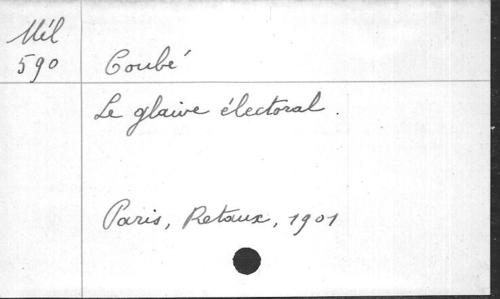 Mél
590
Coubé
Le glaive électoral.
Paris, Retaux, 1901